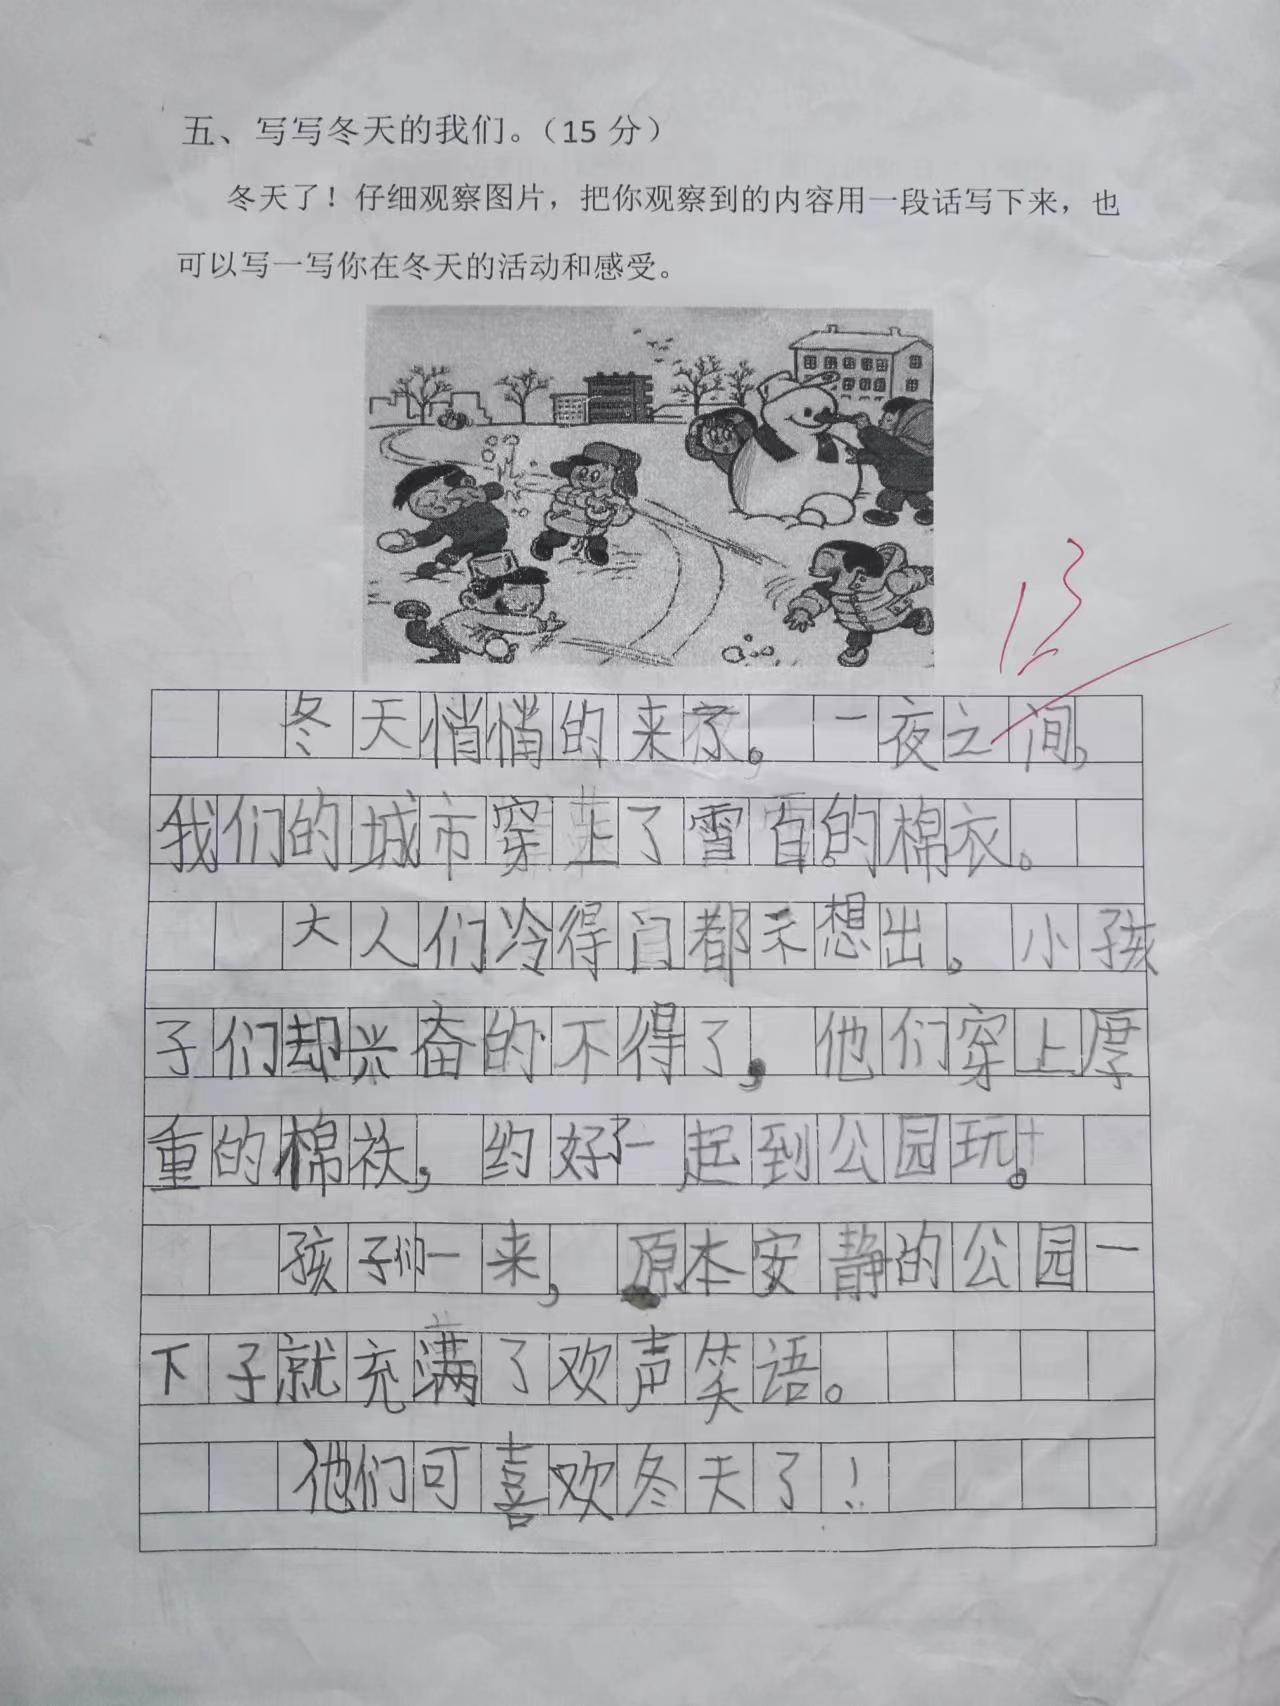 五、写写冬天的我们。（15 分）
冬天了！仔细观察图片，把你观察到的内容用一段话写下来，也
可以写一写你在冬天的活动和感受。
13
冬天悄悄的来了。一夜之间，
我们的城市穿上了雪白的棉衣。
大人们冷得门都不想出。小孩
子们却兴奋的不得了，他们穿上厚
重的棉袄，约好了一起到公园玩。
孩子们一来，原本安静的公园一
下子就充满了欢声笑语。
他们可喜欢冬天了！